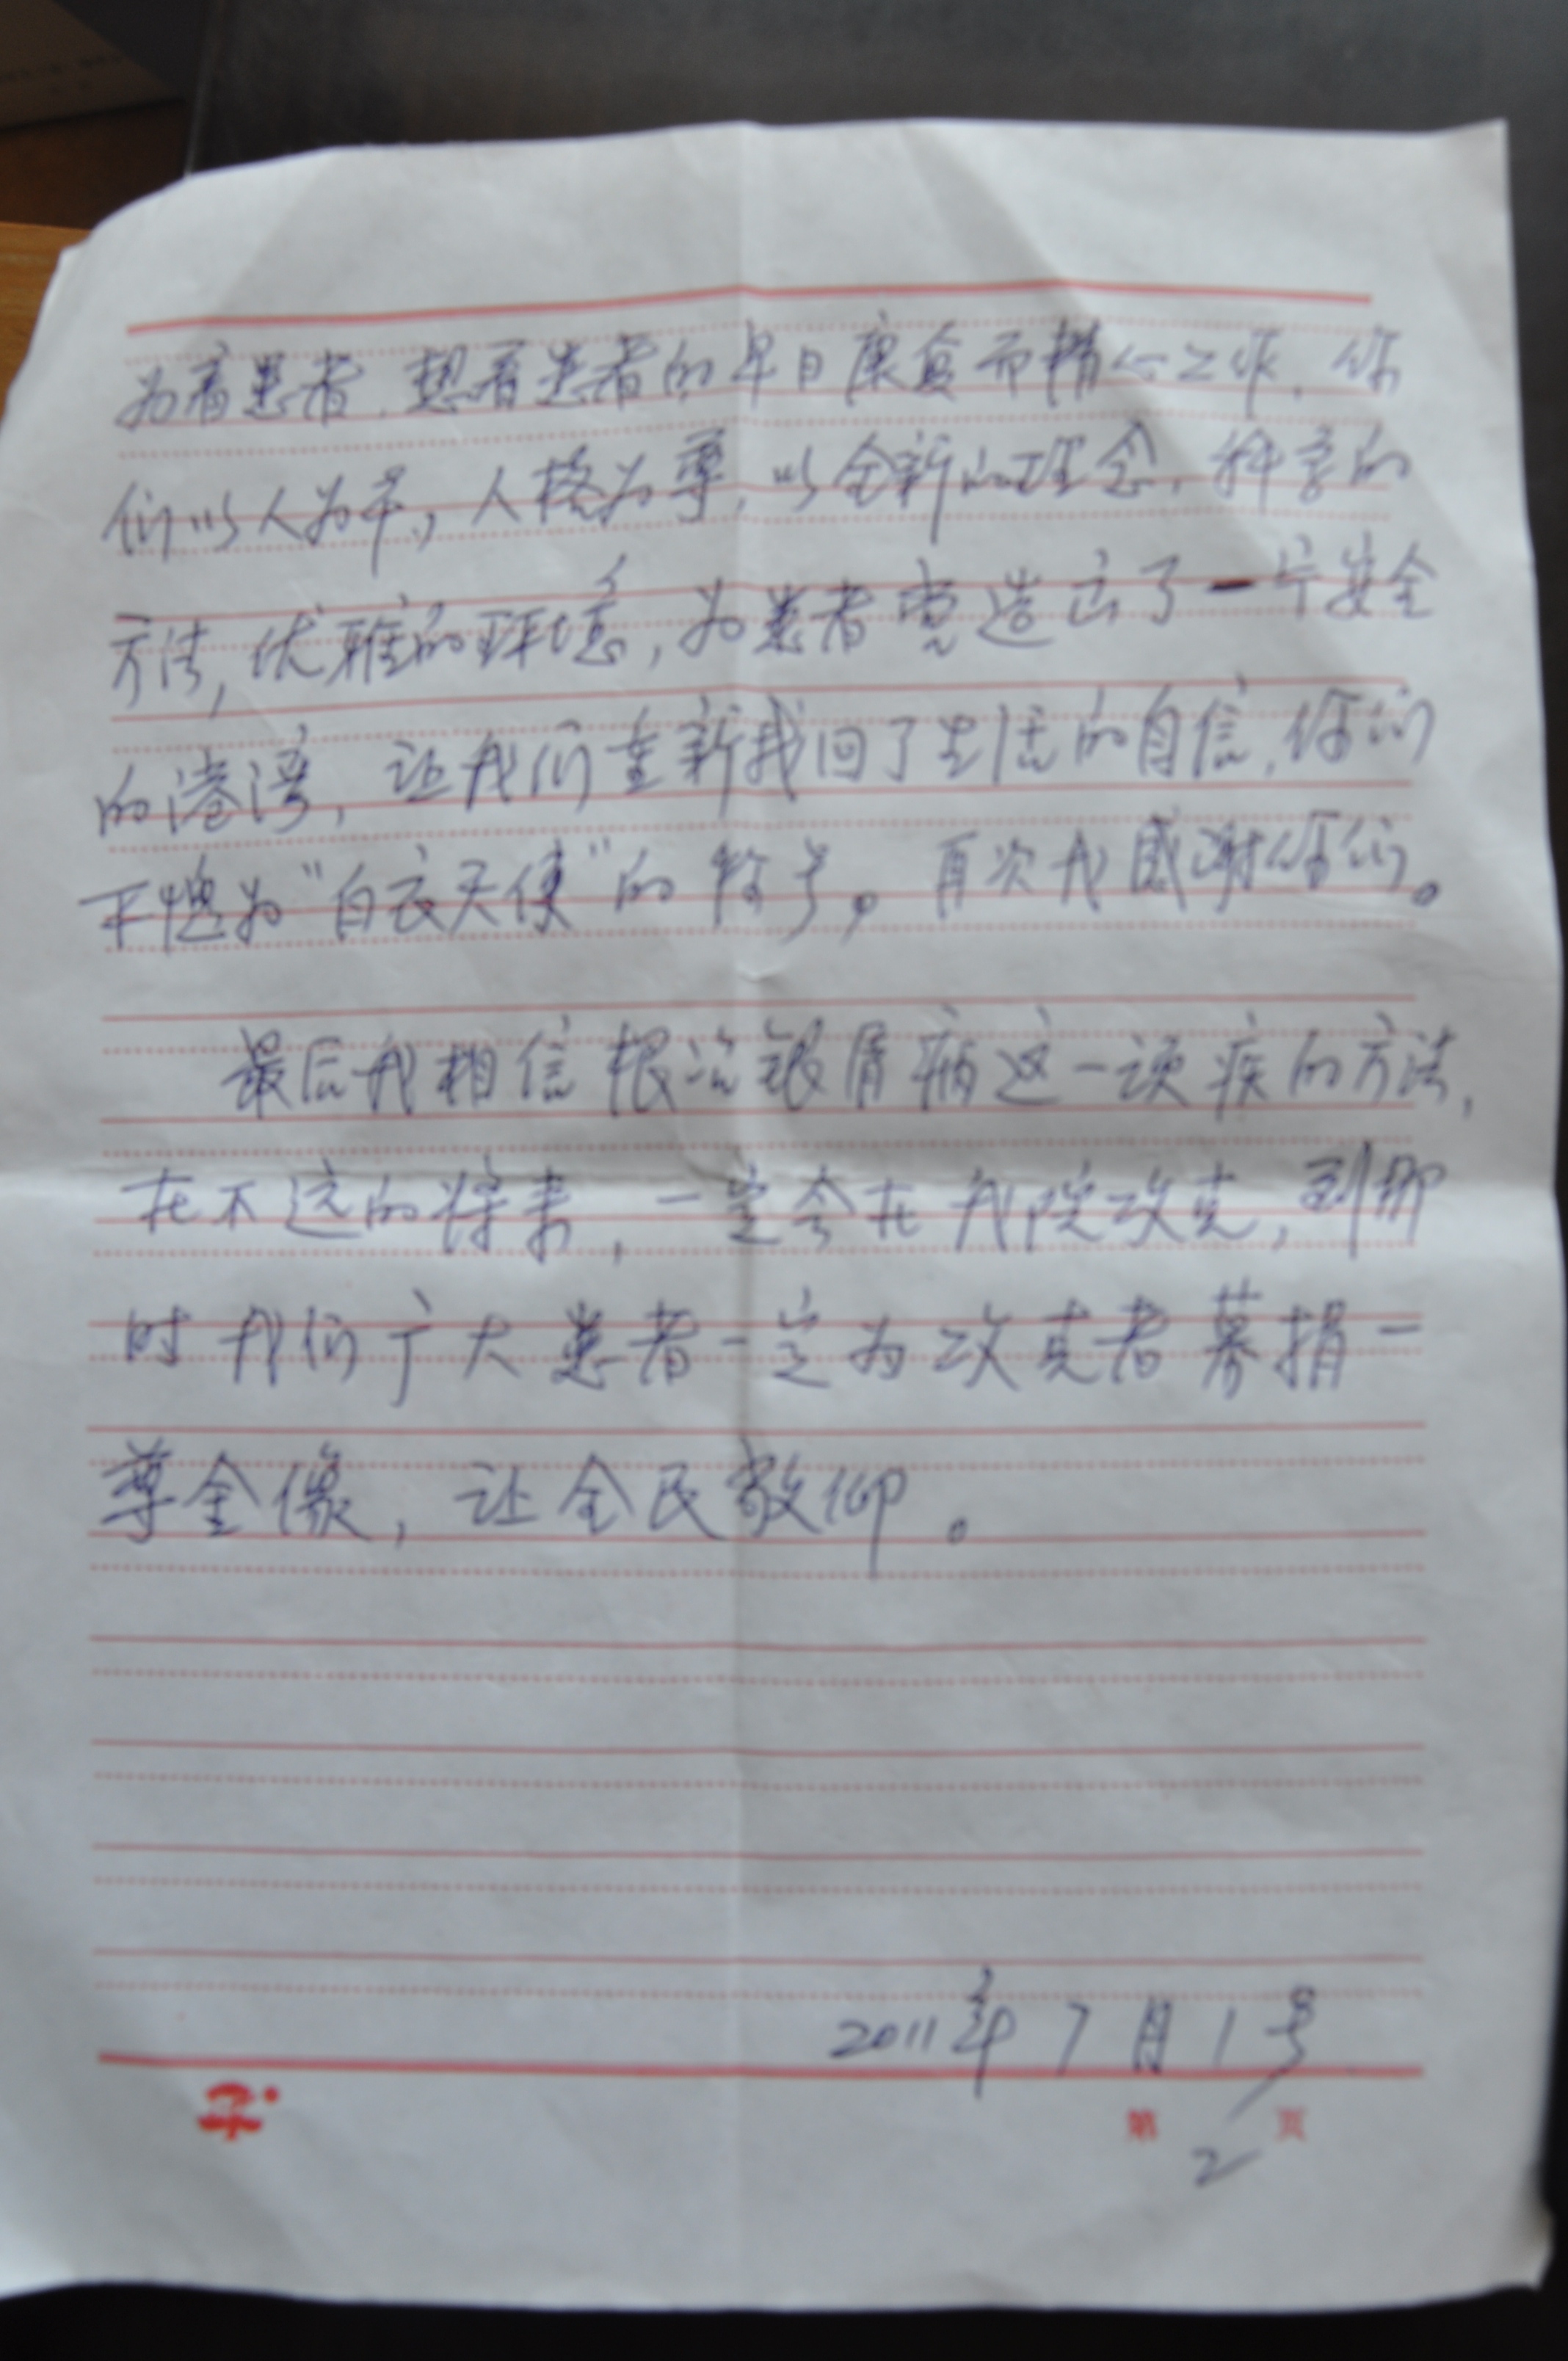 为着患者，想着患者的早日康复而精心工作，你
们以人为本，人格为尊，以全新的理念，科学的
方法，优雅的环境，为患者营造出了一片安全
的港湾，让我们重新找回了生活的自信，你们
不愧为“白衣天使”的称号。再次我感谢你们。
最后我相信根治银屑病这一顽疾的方法，
在不远的将来，一定会在我院攻克，到那
时我们广大患者一定为攻克者募捐一
尊金像，让全民敬仰。
2011年7月1号
第 2 页